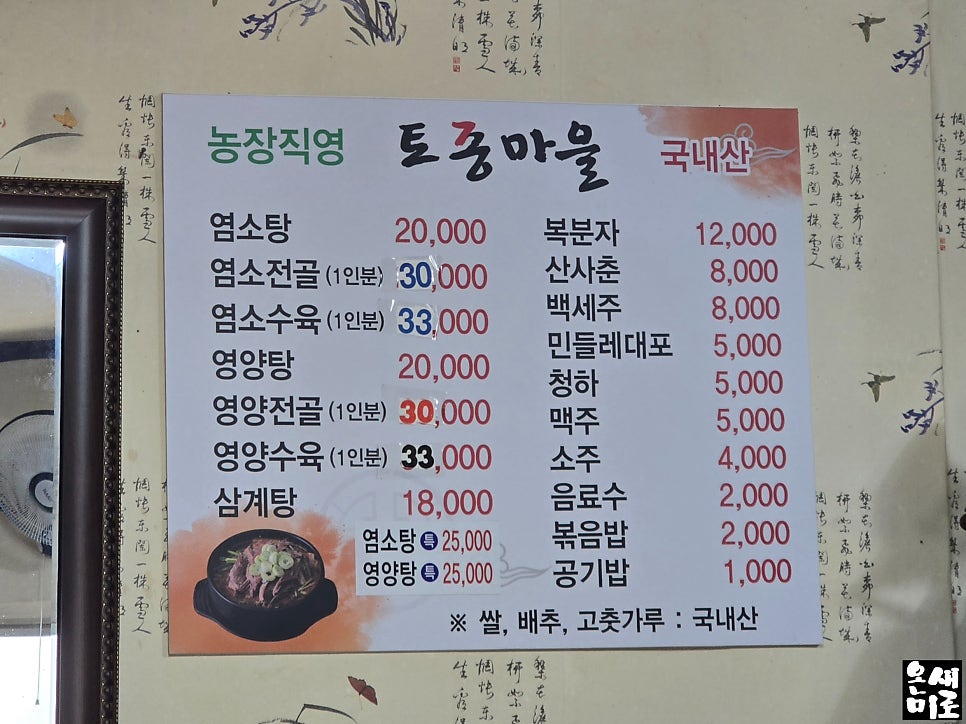 농장직영 토종마을 국내산
염소탕 20,000
염소전골 (1인분) 30,000
염소수육 (1인분) 33,000
영양탕 20,000
영양전골 (1인분) 30,000
영양수육 (1인분) 33,000
삼계탕 18,000
염소탕 특 25,000
영양탕 특 25,000
복분자 12,000
산사춘 8,000
백세주 8,000
민들레대포 5,000
청하 5,000
맥주 5,000
소주 4,000
음료수 2,000
볶음밥 2,000
공기밥 1,000
※ 쌀, 배추, 고춧가루 : 국내산
온새미로